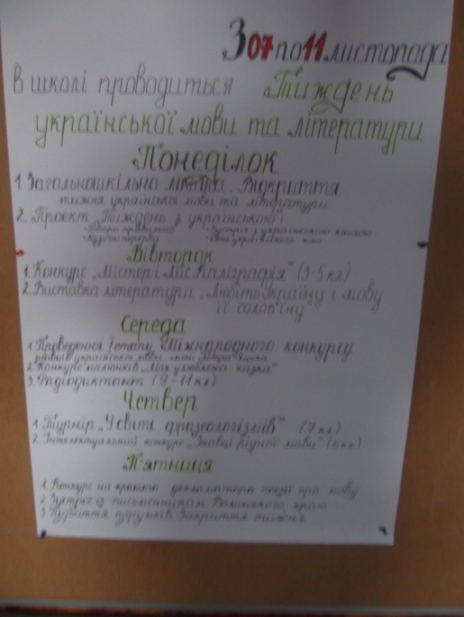 З 07 по 11 листопада
в школі проводиться Тиждень
української мови та літератури
Понеділок
1. Загальношкільна лінійка. Відкриття
тижня української мови та літератури
2. Проект "Тиждень з українською":
Вівторок
1. Конкурс "Містер і Міс Каліграфія" (3-5 кл)
2. Виставка літератури "Любіть Україну і мову
її солов'їну"
Середа
1. Проведення І етапу Міжнародного конкурсу
знавців української мови імені Петра Яцика
2. Конкурс малюнків "Моя улюблена казка"
3. Радіодиктант (9-11 кл)
Четвер
1. Турнір "У світі фразеологізмів" (7 кл)
2. Інтелектуальний конкурс "Знавці рідної мови" (6 кл)
П'ятниця
1. Конкурс на кращого декламатора поезії про мову
2. Зустріч із письменником краю
3. Підбиття підсумків. Закриття тижня